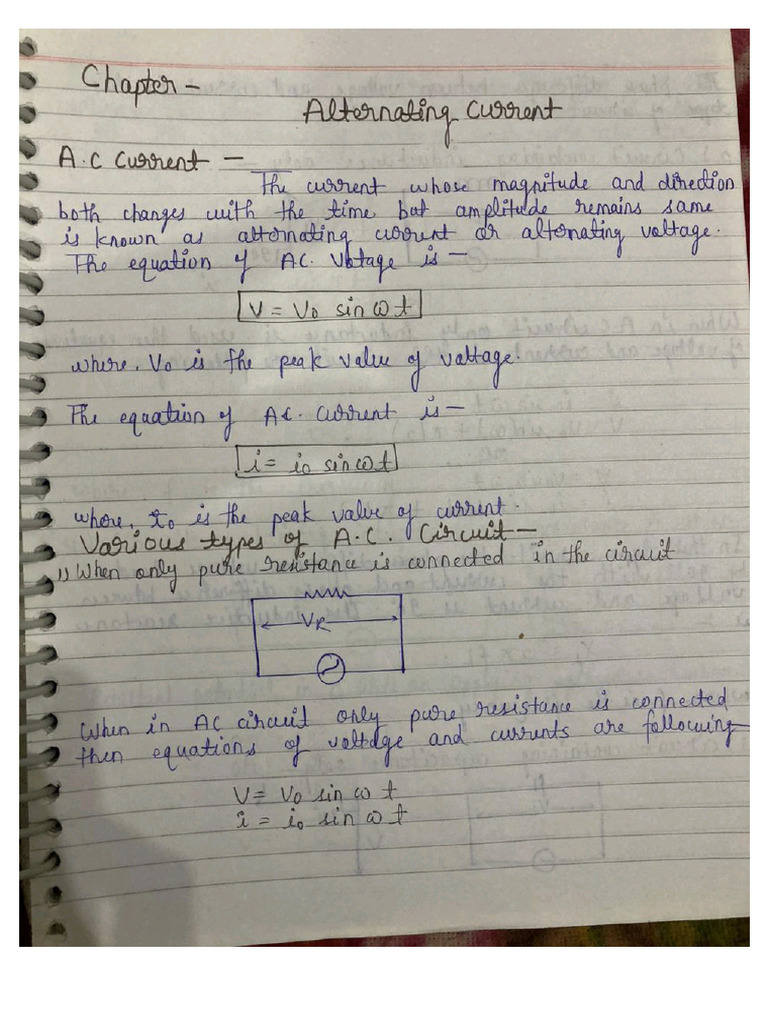 Chapter -
Alternating Current
A.C Current -
The current, whose magnitude and direction
both changes with the time but amplitude remains same
is known as alternating current or alternating voltage.
The equation of AC. Votage is -
V = V₀ sin ω t
where, V₀ is the peak value of voltage.
The equation of AC. current is -
i = i₀ sin ω t
where, i₀ is the peak value of current.
Various types of A.C. Circuit -
1) When only pure resistance is connected in the circuit
VR
When in AC circuit only pure resistance is connected
then equations of voltage and currents are following -
V = V₀ sin ω t
i = i₀ sin ω t